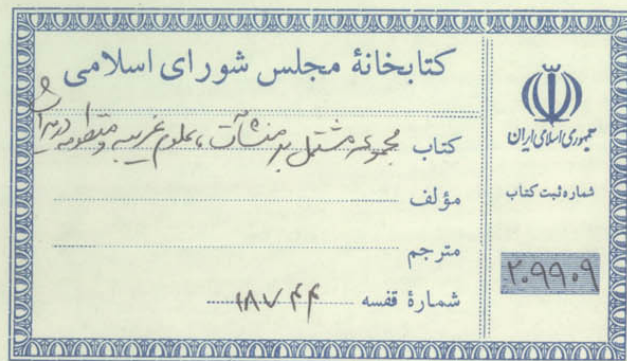 کتابخانهٔ مجلس شورای اسلامی
کتاب مجموعه مشتمل بر منشآت، علوم غریبه و منظومه
مؤلف
مترجم
شمارهٔ قفسه ۱۸۷۴۴
جمهوری اسلامی ایران
شماره ثبت کتاب
۲۰۹۹۰۹